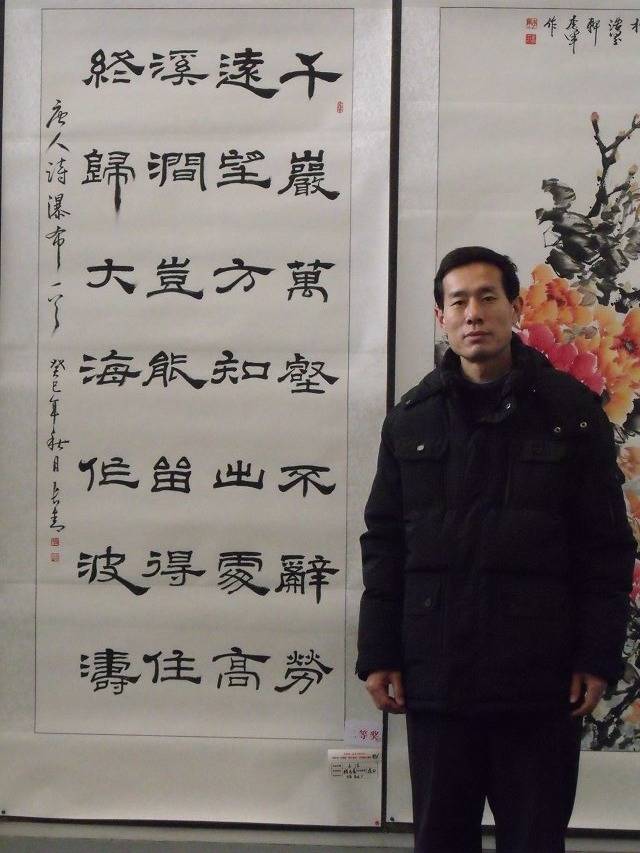 千巖萬壑不辭勞
遠望方知出處高
溪澗豈能留得住
終歸大海作波濤
唐人诗瀑布一首 癸巳年秋月
等奖
轩
作